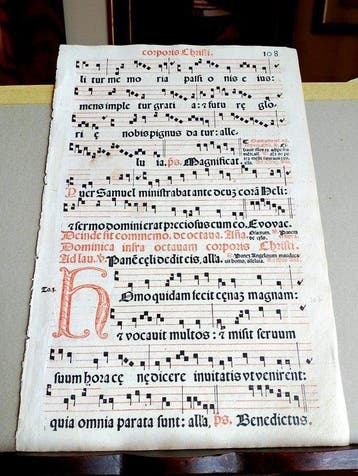 corporis Christi. 108
li tur me mo ria passi o nis e ius:
mens imple tur grati a: & futu rę glo
ri ę nobis pignus da tur: alle.
lu ia. ps. Magnificat
Puer Samuel ministrabat ante deuz corā Heli:
& sermo domini erat preciosus cum eo. Euouae.
Deinde fit commemo. de octaua. Aña.
Dominica infra octauam corporis Christi.
Ad lau. v. Panē cęli dedit eis, alla.
To. 3.
Homo quidam fecit cęnaz magnam:
& vocauit multos: & misit seruum
suum hora cę nę dicere inuitatis vt venirent:
quia omnia parata sunt: alla, ps. Benedictus.